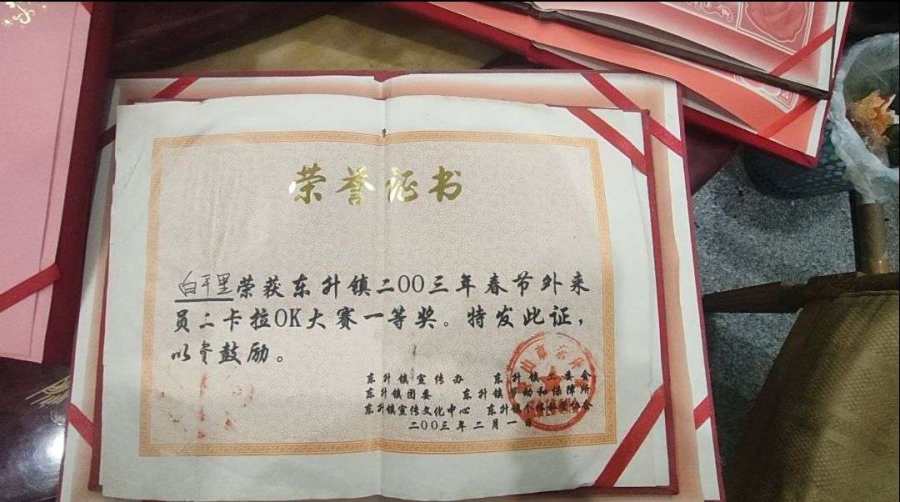 荣誉证书
白平里荣获东升镇二00三年春节外来
员二卡拉OK大赛一等奖。特发此证，
以资鼓励。
东升镇宣传办 东升镇工委会
东升镇团委 东升镇劳动和保障所
东升镇宣传文化中心 东升镇个体协会
二00三年二月一日